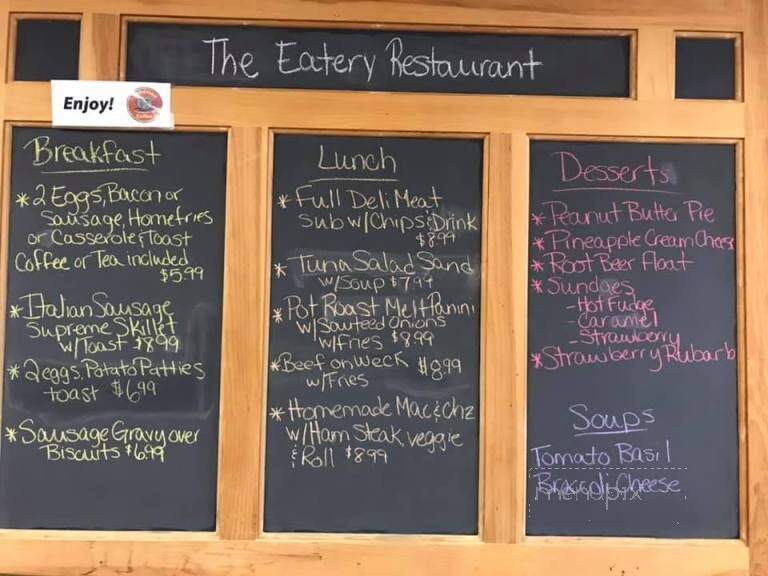 The Eatery Restaurant
Enjoy!
Breakfast
* 2 Eggs, Bacon or
Sausage, Homefries
or Casserole & Toast
Coffee or Tea included
$5.99
* Italian Sausage
Supreme Skillet
w/Toast $8.99
* 2 eggs, Potato Patties
toast $6.99
* Sausage Gravy over
Biscuits $6.99
Lunch
* Full Deli Meat
Sub w/Chips & Drink
$8.99
* Tuna Salad Sand
w/Soup $7.99
* Pot Roast Melt Panini
w/Sauteed Onions
w/Fries $8.99
* Beef on Weck $8.99
w/Fries
* Homemade Mac & Chz
w/Ham Steak, veggie
& Roll $8.99
Desserts
* Peanut Butter Pie
* Pineapple Cream Cheese
* Root Beer Float
* Sundaes
- Hot Fudge
- Caramel
- Strawberry
* Strawberry Rubarb
Soups
Tomato Basil
Broccoli Cheese
menupix